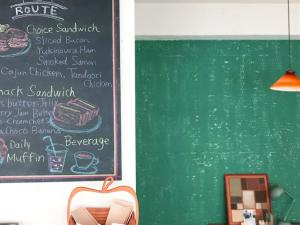 ROUTE
Choice Sandwich
Sliced Bacon
Yukinoura Ham
Smoked Salmon
Cajun Chicken, Tandoori
Chicken
nack Sandwich
s butter Jelly
rry Jam Butter
Creamchee
Choco Banana
Daily
Muffin
Beverage